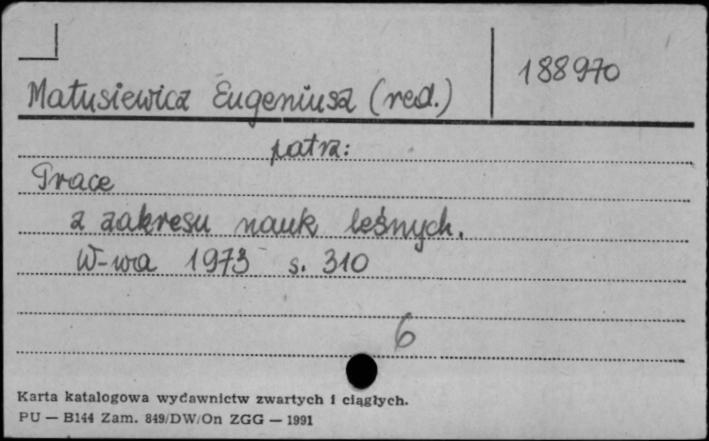 188970
Matusiewicz Eugeniusz (red.)
patrz:
Prace
z zakresu nauk leśnych.
W-wa 1973 s. 310
6
Karta katalogowa wydawnictw zwartych i ciągłych.
PU — B144 Zam. 849/DW/On ZGG — 1991